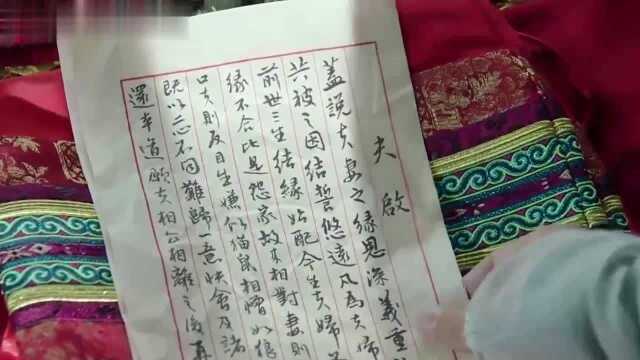 夫啟
蓋說夫妻之緣恩深義重
共被之因結誓悠遠凡為夫婦
前世三生結緣始配今生夫婦
緣不合比是怨家故來相對妻則
口夫則反目生嫌似猫鼠相憎如狼
既以二心不同難歸一意快會及諸
還本道願夫相公相離之後再